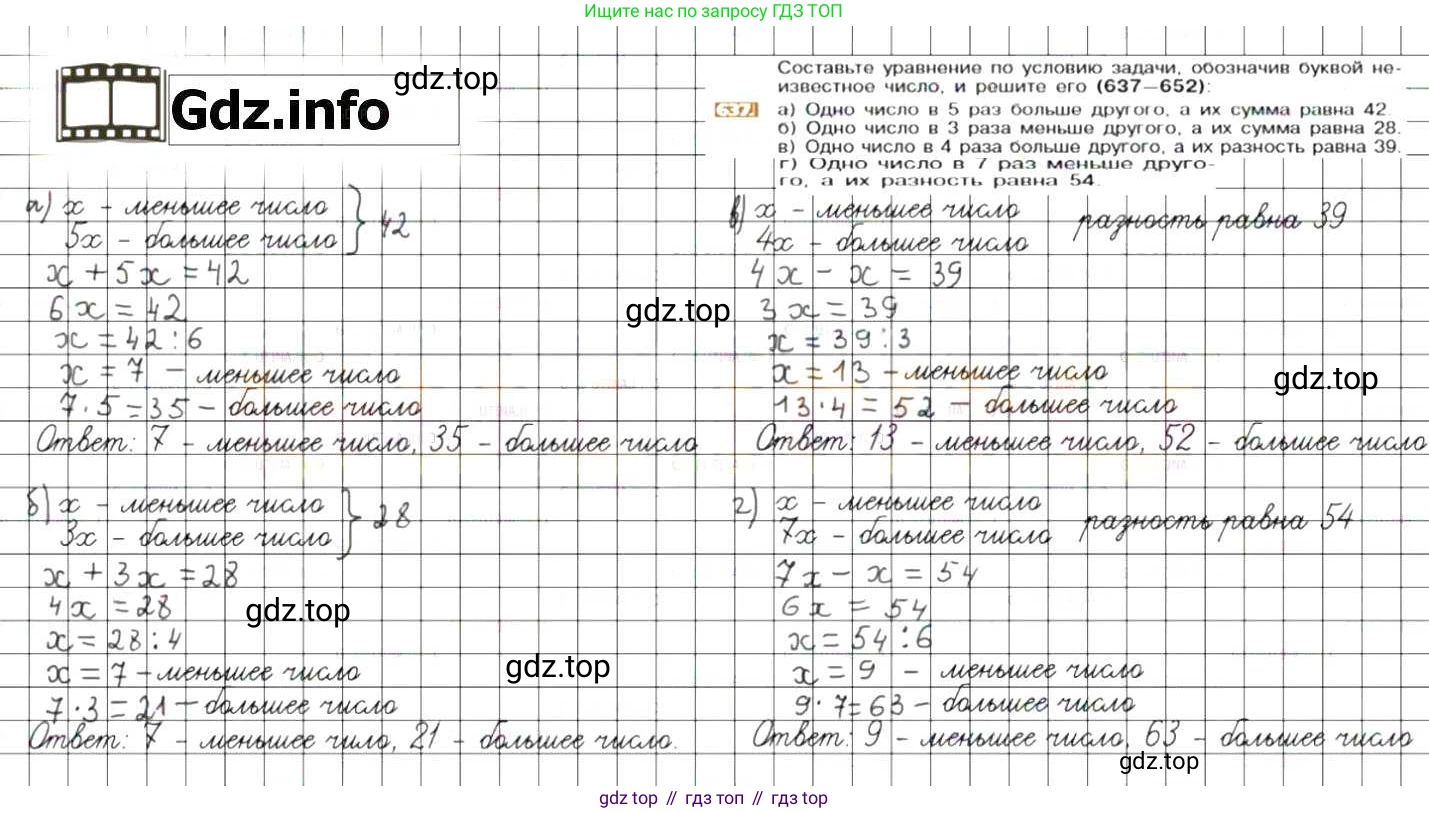 Ищите нас по запросу ГДЗ ТОП
Gdz.info
gdz.top
Составьте уравнение по условию задачи, обозначив буквой не-
известное число, и решите его (637—652):
637. а) Одно число в 5 раз больше другого, а их сумма равна 42.
б) Одно число в 3 раза меньше другого, а их сумма равна 28.
в) Одно число в 4 раза больше другого, а их разность равна 39.
г) Одно число в 7 раз меньше друго-
го, а их разность равна 54.
а) x - меньшее число } 42
5x - большее число
x + 5x = 42
6x = 42
x = 42 : 6
x = 7 - меньшее число
7 · 5 = 35 - большее число
Ответ: 7 - меньшее число, 35 - большее число
gdz.top
в) x - меньшее число разность равна 39
4x - большее число
4x - x = 39
3x = 39
x = 39 : 3
x = 13 - меньшее число
13 · 4 = 52 - большее число
Ответ: 13 - меньшее число, 52 - большее число
gdz.top
б) x - меньшее число } 28
3x - большее число
x + 3x = 28
4x = 28
x = 28 : 4
x = 7 - меньшее число
7 · 3 = 21 - большее число
Ответ: 7 - меньшее чило, 21 - большее число.
gdz.top
gdz.top
г) x - меньшее число разность равна 54
7x - большее число
7x - x = 54
6x = 54
x = 54 : 6
x = 9 - меньшее число
9 · 7 = 63 - большее число
Ответ: 9 - меньшее число, 63 - большее число
gdz.top
gdz top // гдз топ // gdz top